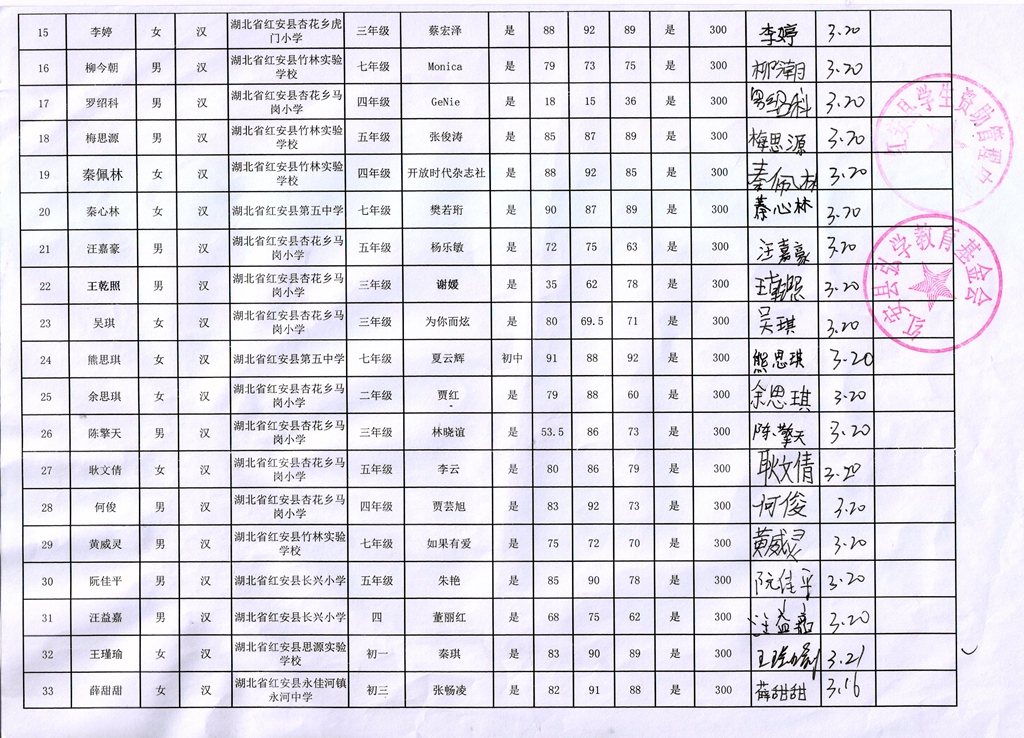 15 李婷 女 汉 湖北省红安县杏花乡虎门小学 三年级 蔡宏泽 是 88 92 89 是 300 李婷 3.20
16 柳今朝 男 汉 湖北省红安县竹林实验学校 七年级 Monica 是 79 73 75 是 300 柳今朝 3.20
17 罗绍科 男 汉 湖北省红安县杏花乡马岗小学 四年级 GeNie 是 18 15 36 是 300 罗绍科 3.20
18 梅思源 男 汉 湖北省红安县竹林实验学校 五年级 张俊涛 是 85 87 89 是 300 梅思源 3.20
19 秦佩林 女 汉 湖北省红安县竹林实验学校 四年级 开放时代杂志社 是 88 92 85 是 300 秦佩林 3.20
20 秦心林 女 汉 湖北省红安县第五中学 七年级 樊若珩 是 90 87 89 是 300 秦心林 3.20
21 汪嘉豪 男 汉 湖北省红安县杏花乡马岗小学 五年级 杨乐敏 是 72 75 63 是 300 汪嘉豪 3.20
22 王乾照 男 汉 湖北省红安县杏花乡马岗小学 三年级 谢媛 是 35 62 78 是 300 王乾照 3.20
23 吴琪 女 汉 湖北省红安县杏花乡马岗小学 三年级 为你而炫 是 80 69.5 71 是 300 吴琪 3.20
24 熊思琪 女 汉 湖北省红安县第五中学 七年级 夏云辉 初中 91 88 92 是 300 熊思琪 3.20
25 余思琪 女 汉 湖北省红安县杏花乡马岗小学 二年级 贾红 是 79 88 60 是 300 余思琪 3.20
26 陈擎天 男 汉 湖北省红安县杏花乡马岗小学 三年级 林晓谊 是 53.5 86 73 是 300 陈擎天 3.20
27 耿文倩 女 汉 湖北省红安县杏花乡马岗小学 五年级 李云 是 80 86 79 是 300 耿文倩 3.20
28 何俊 男 汉 湖北省红安县杏花乡马岗小学 四年级 贾芸旭 是 83 92 73 是 300 何俊 3.20
29 黄威灵 男 汉 湖北省红安县竹林实验学校 七年级 如果有爱 是 75 72 70 是 300 黄威灵 3.20
30 阮佳平 男 汉 湖北省红安县长兴小学 五年级 朱艳 是 85 90 78 是 300 阮佳平 3.20
31 汪益嘉 男 汉 湖北省红安县长兴小学 四 董丽红 是 68 75 62 是 300 汪益嘉 3.20
32 王瑾瑜 女 汉 湖北省红安县思源实验学校 初一 秦琪 是 83 90 89 是 300 王瑾瑜 3.21
33 薛甜甜 女 汉 湖北省红安县永佳河镇永河中学 初三 张畅凌 是 82 91 88 是 300 薛甜甜 3.16
红安县学生资助管理中
红安县弘学教育基金会